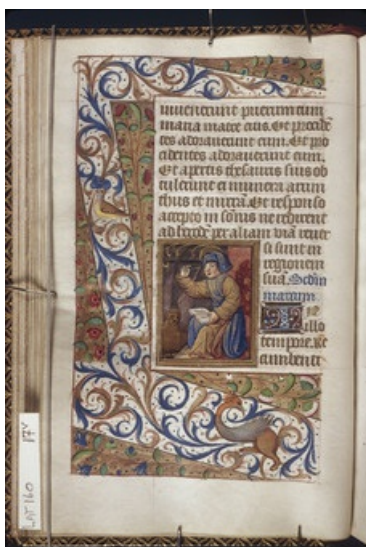 invenerunt puerum cum
maria matre eius. Et procidē
tes adoraverunt eum. Et pro
cidentes adoraverunt eum.
Et apertis thesauris suis ob
tulerunt ei munera aurum
thus et mirrā. Et responso
accepto in sōnis ne redirent
ad herodē per aliam viā rever
si sunt in
regionem
suā. Scdm
marcum
IN illo
tempore. Re
cumbenti
LAT 160 17v